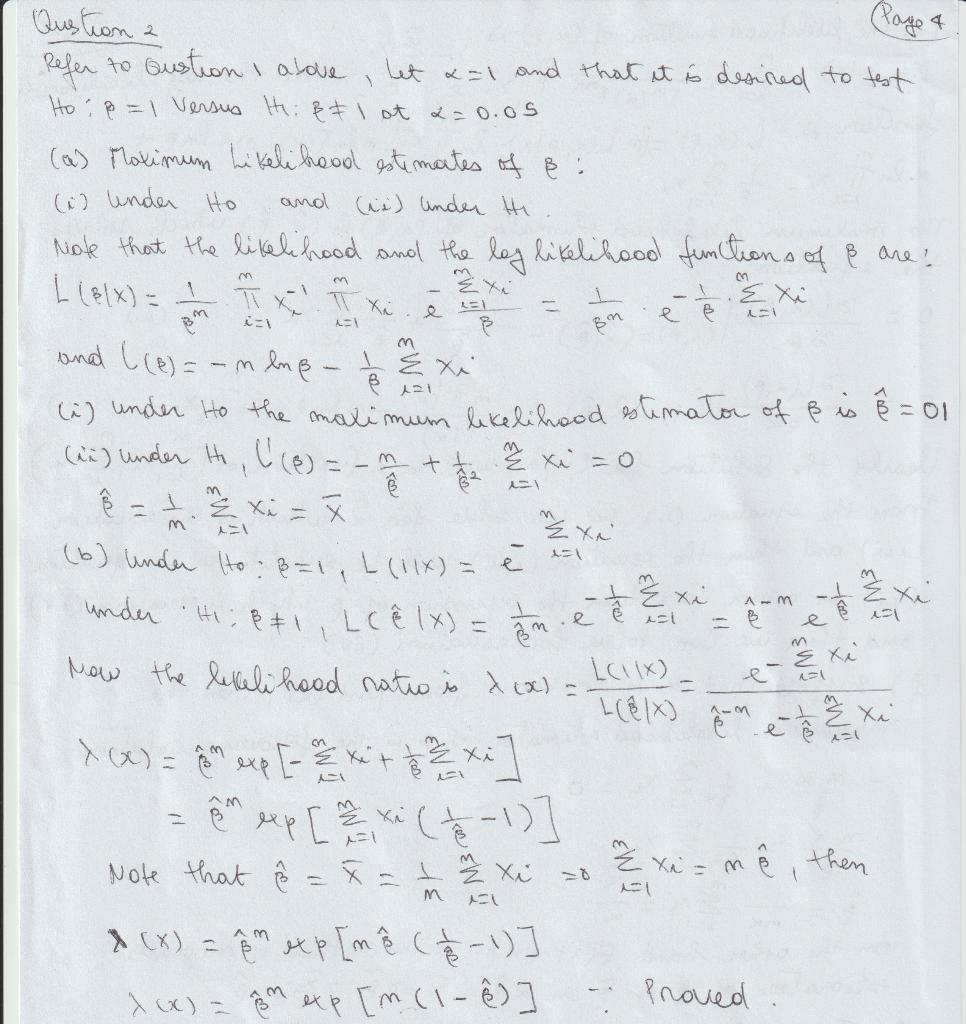 Page 4
Question 2
Refer to Question 1 above, let α = 1 and that it is desired to test
Ho : β = 1 Versus H1 : β ≠ 1 at α = 0.05
(a) Maximum Likelihood estimates of β :
(i) Under Ho and (ii) Under H1.
Note that the likelihood and the log likelihood functions of β are:
L(β|X) = 1/β^n ∏_{i=1}^n X_i^{-1} ∏_{i=1}^n X_i . e^{-∑_{i=1}^n X_i / β} = 1/β^n . e^{-1/β . ∑_{i=1}^n X_i}
and l(β) = - n ln β - 1/β ∑_{i=1}^n X_i
(i) under Ho the maximum likelihood estimator of β is β̂ = 01
(ii) under H1, l'(β) = - n/β̂ + 1/β̂² ∑_{i=1}^n X_i = 0
β̂ = 1/n ∑_{i=1}^n X_i = X̄
(b) Under Ho : β = 1, L(1|X) = e^{-∑_{i=1}^n X_i}
under H1 : β ≠ 1, L(β̂|X) = 1/β̂^n . e^{-1/β̂ ∑_{i=1}^n X_i} = β̂^{-n} e^{-1/β̂ ∑_{i=1}^n X_i}
Now the likelihood ratio is λ(x) = L(1|X) / L(β̂|X) = e^{-∑_{i=1}^n X_i} / β̂^{-n} . e^{-1/β̂ ∑_{i=1}^n X_i}
λ(x) = β̂^n exp [-∑_{i=1}^n X_i + 1/β̂ ∑_{i=1}^n X_i]
= β̂^n exp [∑_{i=1}^n X_i (1/β̂ - 1)]
Note that β̂ = X̄ = 1/n ∑_{i=1}^n X_i ⇒ ∑_{i=1}^n X_i = n β̂, then
λ(x) = β̂^n exp [n β̂ (1/β̂ - 1)]
λ(x) = β̂^n exp [n (1 - β̂)] - Proved.